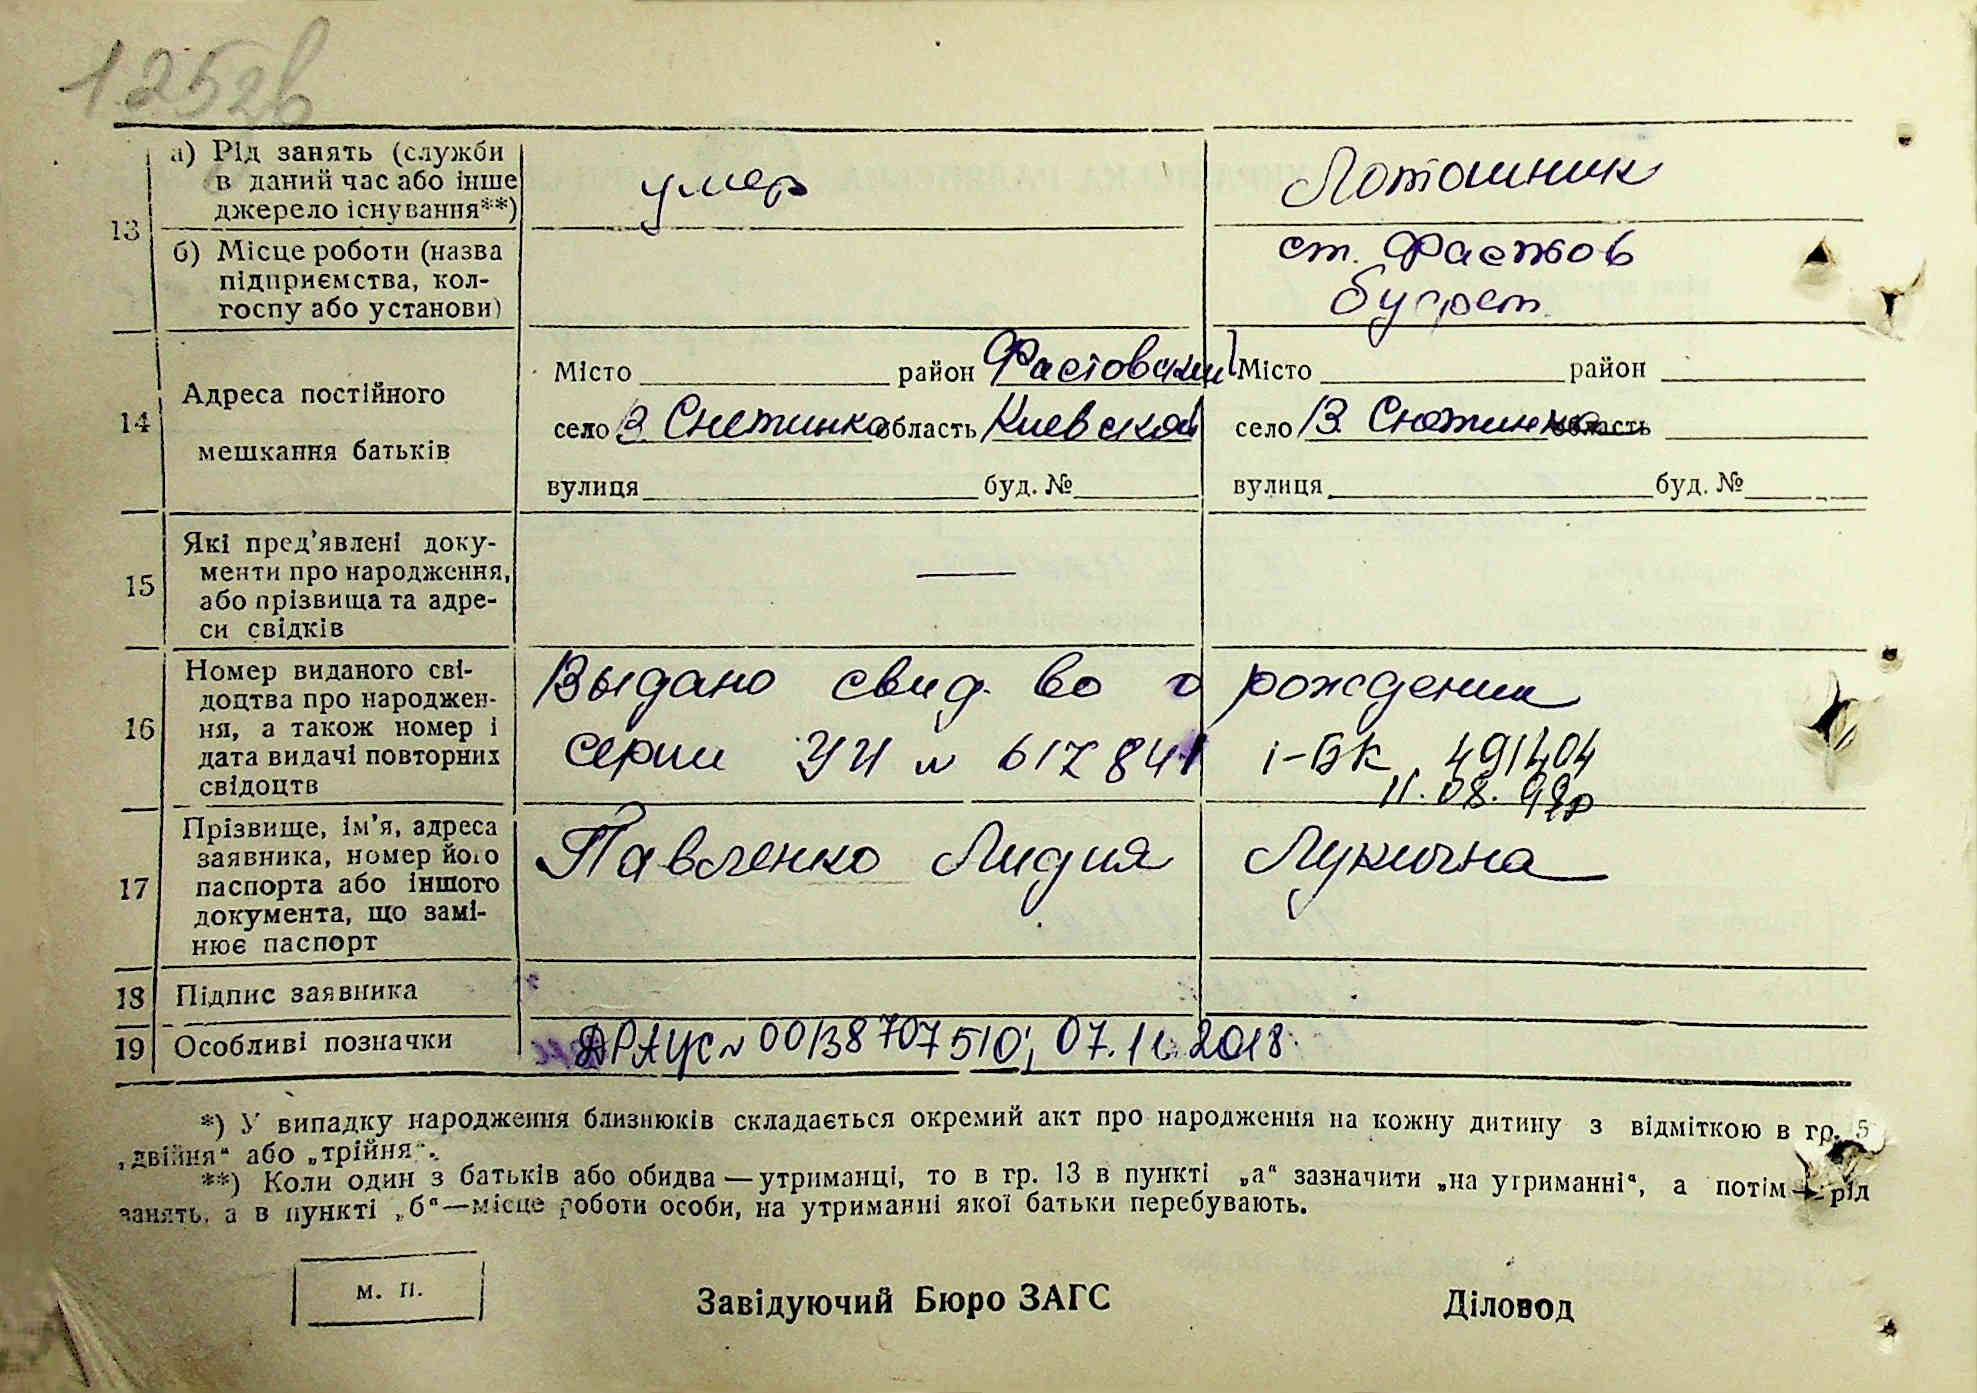 1252в
13
а) Рід занять (служби
в даний час або інше
джерело існування**)
умер
Лотошник
б) Місце роботи (назва
підприємства, кол-
госпу або установи)
ст. Фастов
буфет
14
Адреса постійного
мешкання батьків
Місто район Фастовский
село В Снетинка область Киевской
вулиця буд. №
Місто район
село В. Снетинка область
вулиця буд. №
15
Які пред'явлені доку-
менти про народження,
або прізвища та адре-
си свідків
—
16
Номер виданого сві-
доцтва про народжен-
ня, а також номер і
дата видачі повторних
свідоцтв
Выдано свид во о рождении
серии УИ № 617841 І-БК 491404
11.08.99р
17
Прізвище, ім'я, адреса
заявника, номер його
паспорта або іншого
документа, що замі-
нює паспорт
Павленко Лидия Лукична
18
Підпис заявника
19
Особливі позначки
ДРАЦС № 00138707510; 07.11.2018
*) У випадку народження близнюків складається окремий акт про народження на кожну дитину з відміткою в гр. 5
„двійня“ або „трійня“.
**) Коли один з батьків або обидва — утриманці, то в гр. 13 в пункті „а“ зазначити „на утриманні“, а потім — рід
занять, а в пункті „б“—місце роботи особи, на утриманні якої батьки перебувають.
М. П.
Завідуючий Бюро ЗАГС
Діловод